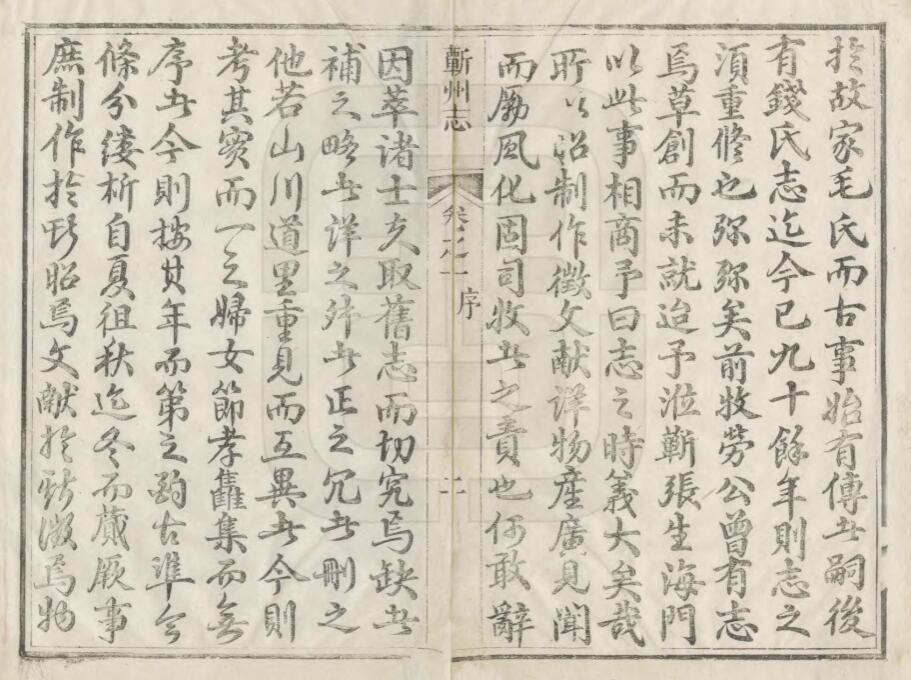 於故家毛氏而古事始有傳者嗣後
有錢氏志迄今已九十餘年則志之
須重修也弥弥矣前牧勞公曾有志
焉草創而未就迨予涖蘄張生海門
以此事相商予曰志之時義大矣哉
所以昭制作徵文獻詳物産廣見聞
而勵風化固司牧者之責也何敢辭
蘄州志
卷之一 序 二
因萃诸士夫取舊志而切究焉缺者
補之略者詳之舛者正之冗者刪之
他若山川道里重見而互異者今則
考其實而一之婦女節孝雜集而無
序者今則按其年而第之酌古準今
條分縷析自夏徂秋迄冬而蕆厥事
庶制作於斯昭焉文獻於斯徵焉物